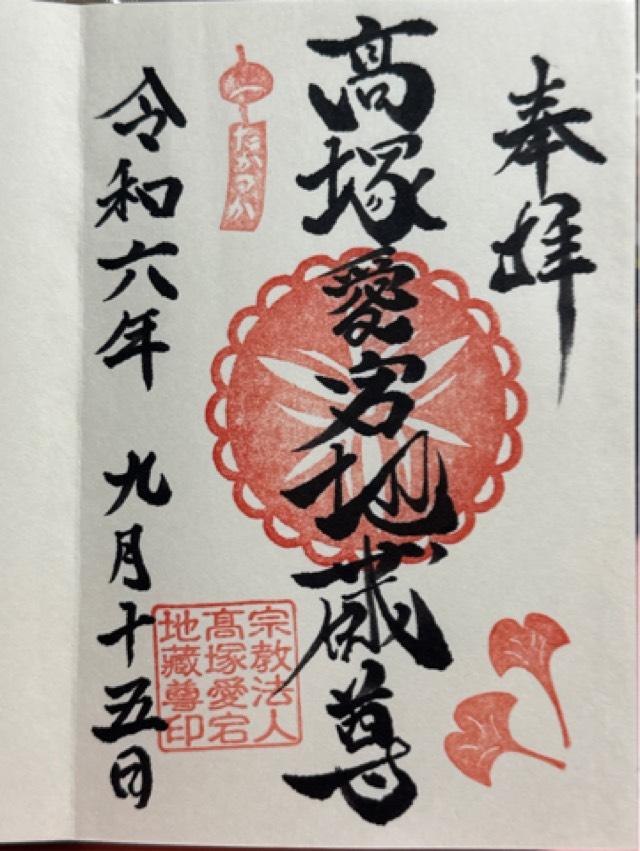 奉拝
高塚愛宕地蔵尊
たかつか
令和六年 九月十五日
宗教法人
高塚愛宕
地蔵尊印